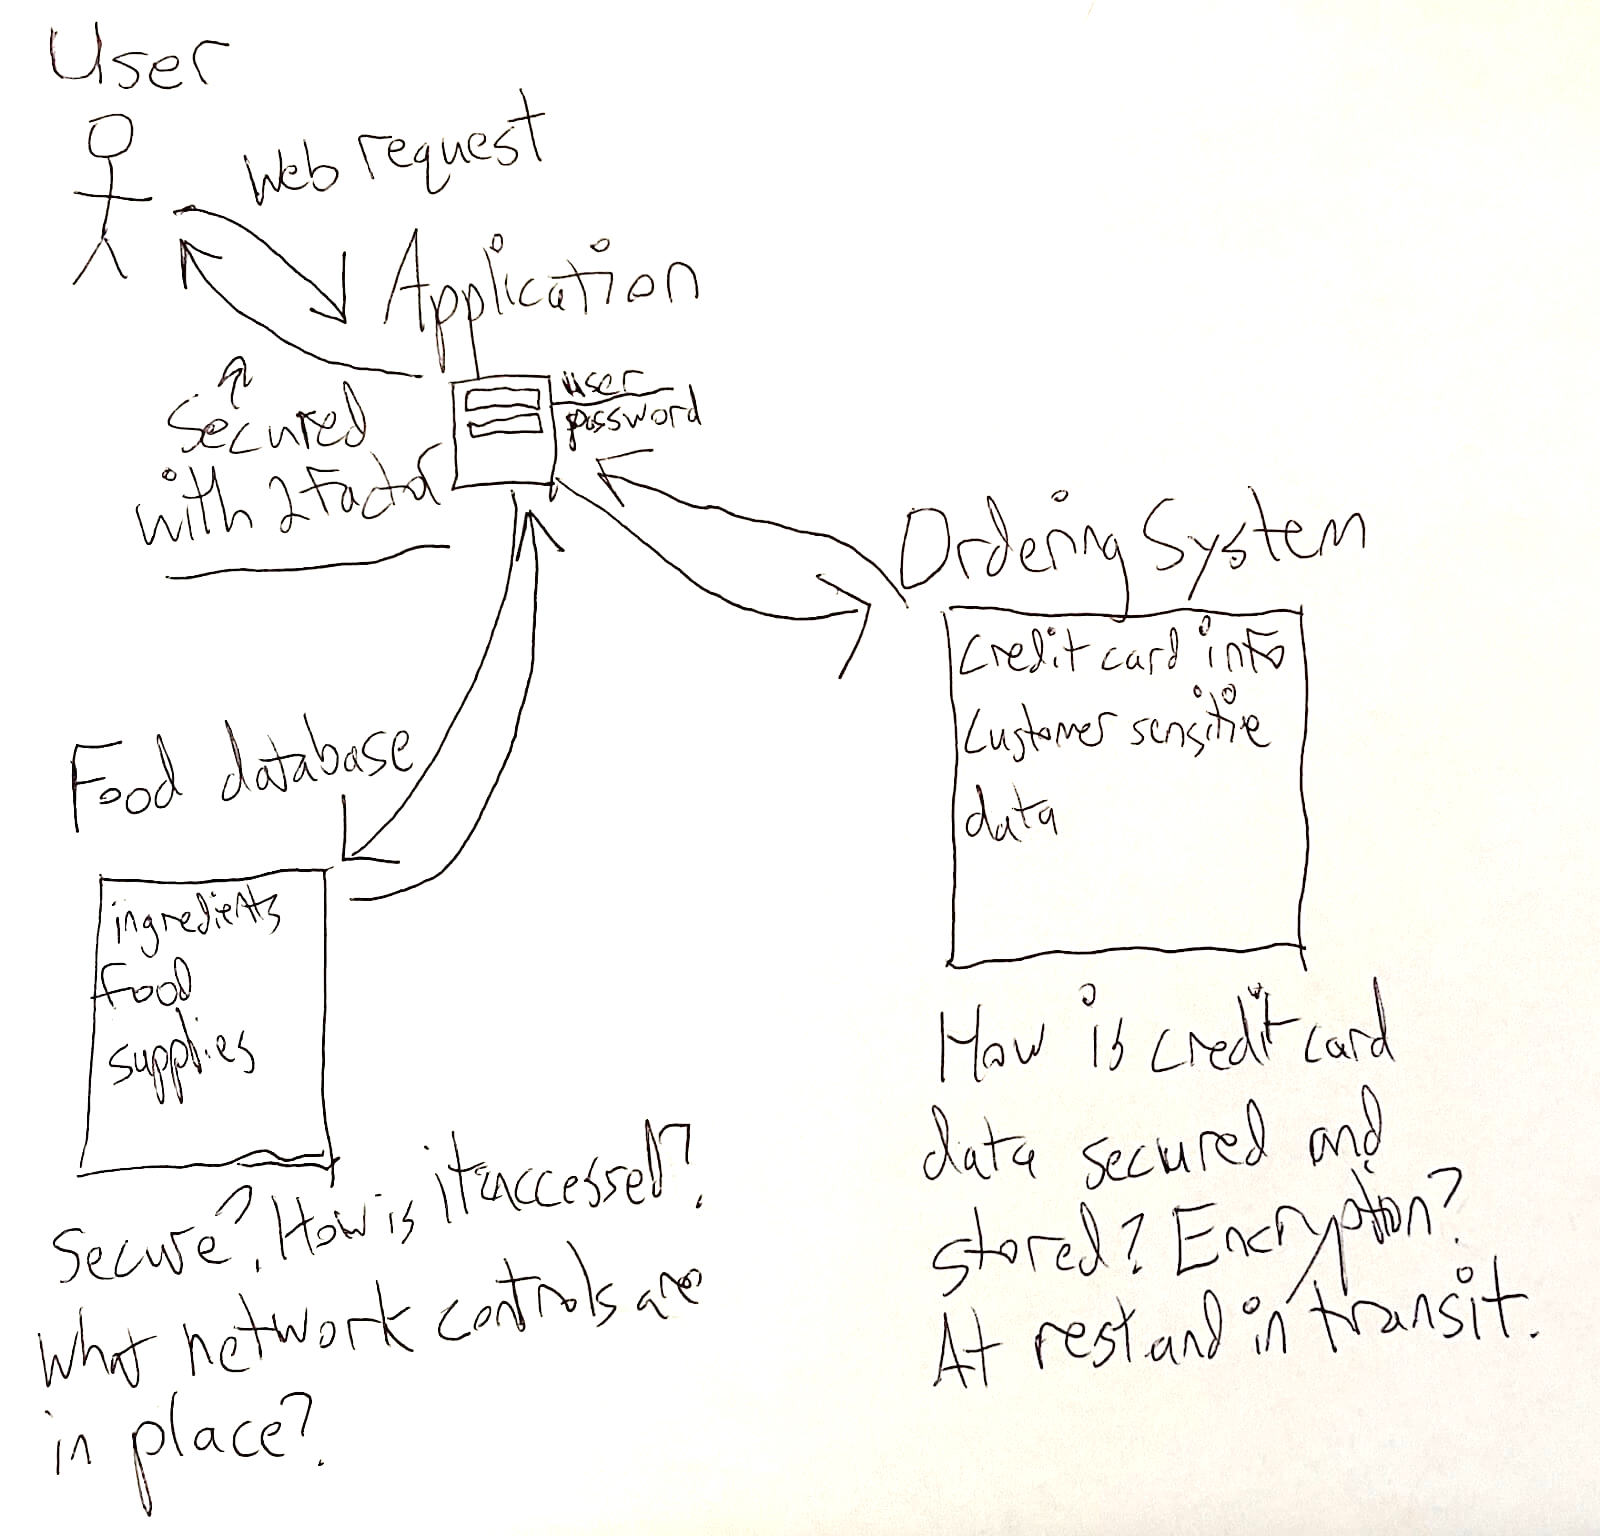 User
Web request
Application
user
password
Secured
with 2 Factor
Ordering System
Credit card info
Customer sensitive
data
Food database
ingredients
food
supplies
Secure? How is it accessed?
What network controls are
in place?
How is credit card
data secured and
stored? Encryption?
At rest and in transit.